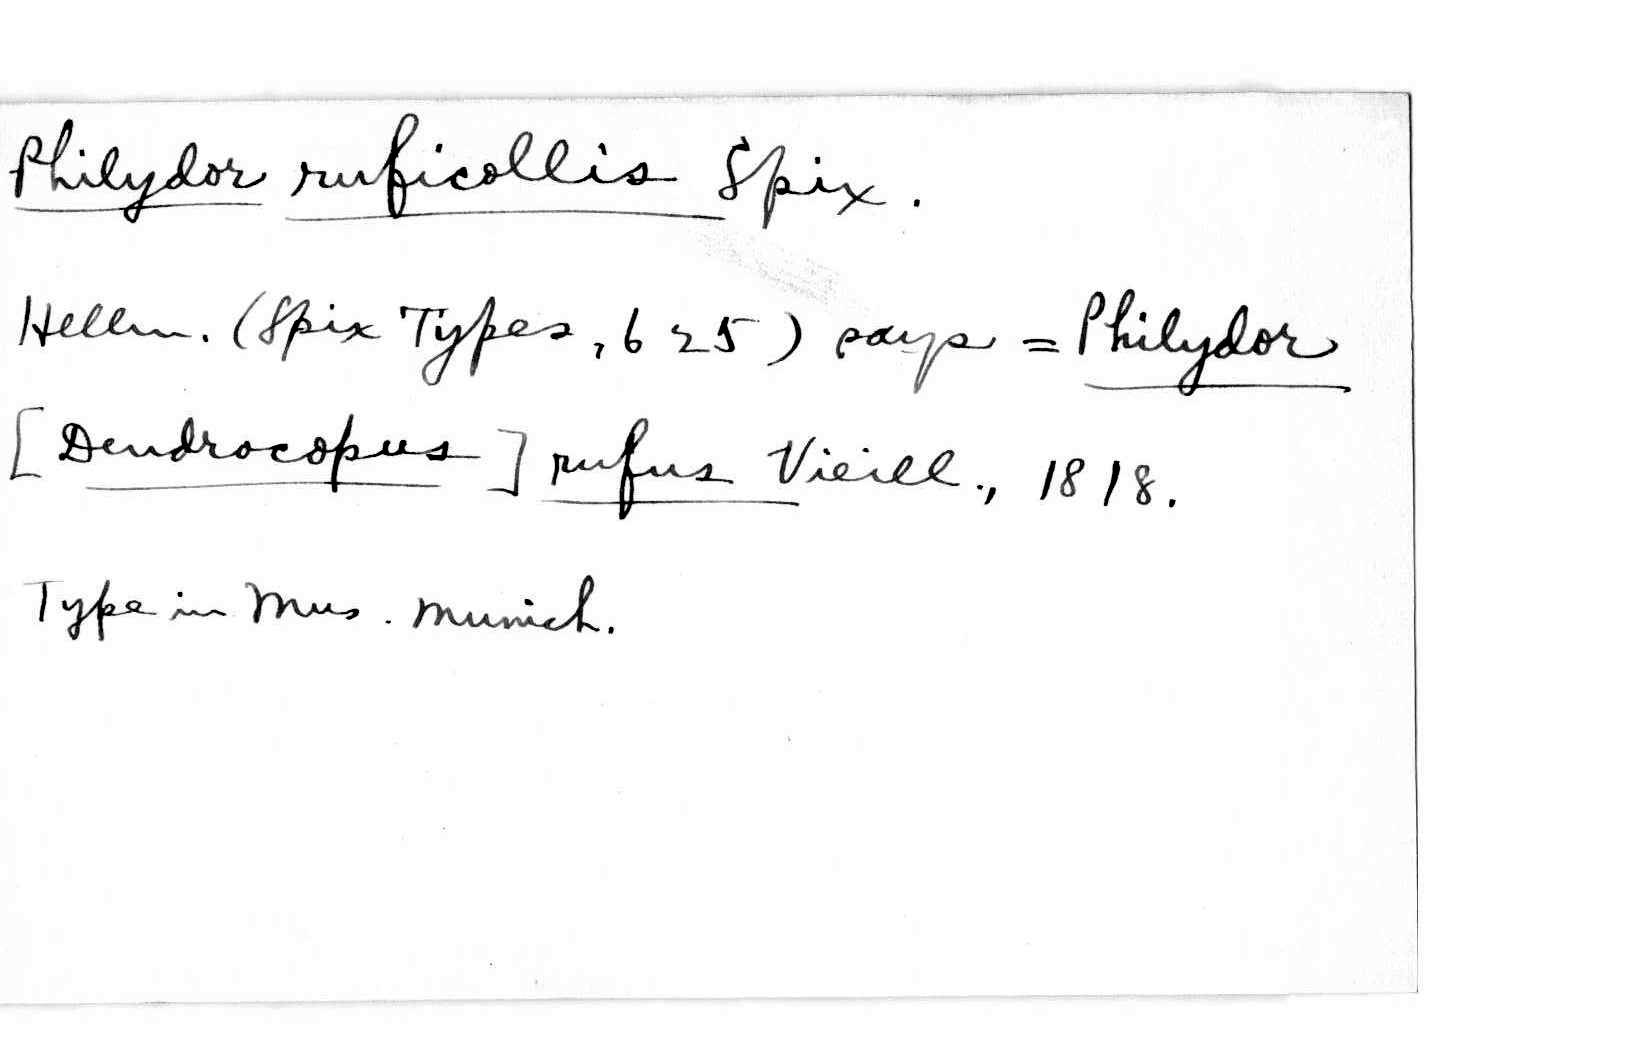 Philydor ruficollis Spix.
Hellm. (Spix Types, 625) says = Philydor
[Dendrocopus] rufus Vieill., 1818.
Type in Mus. Munich.